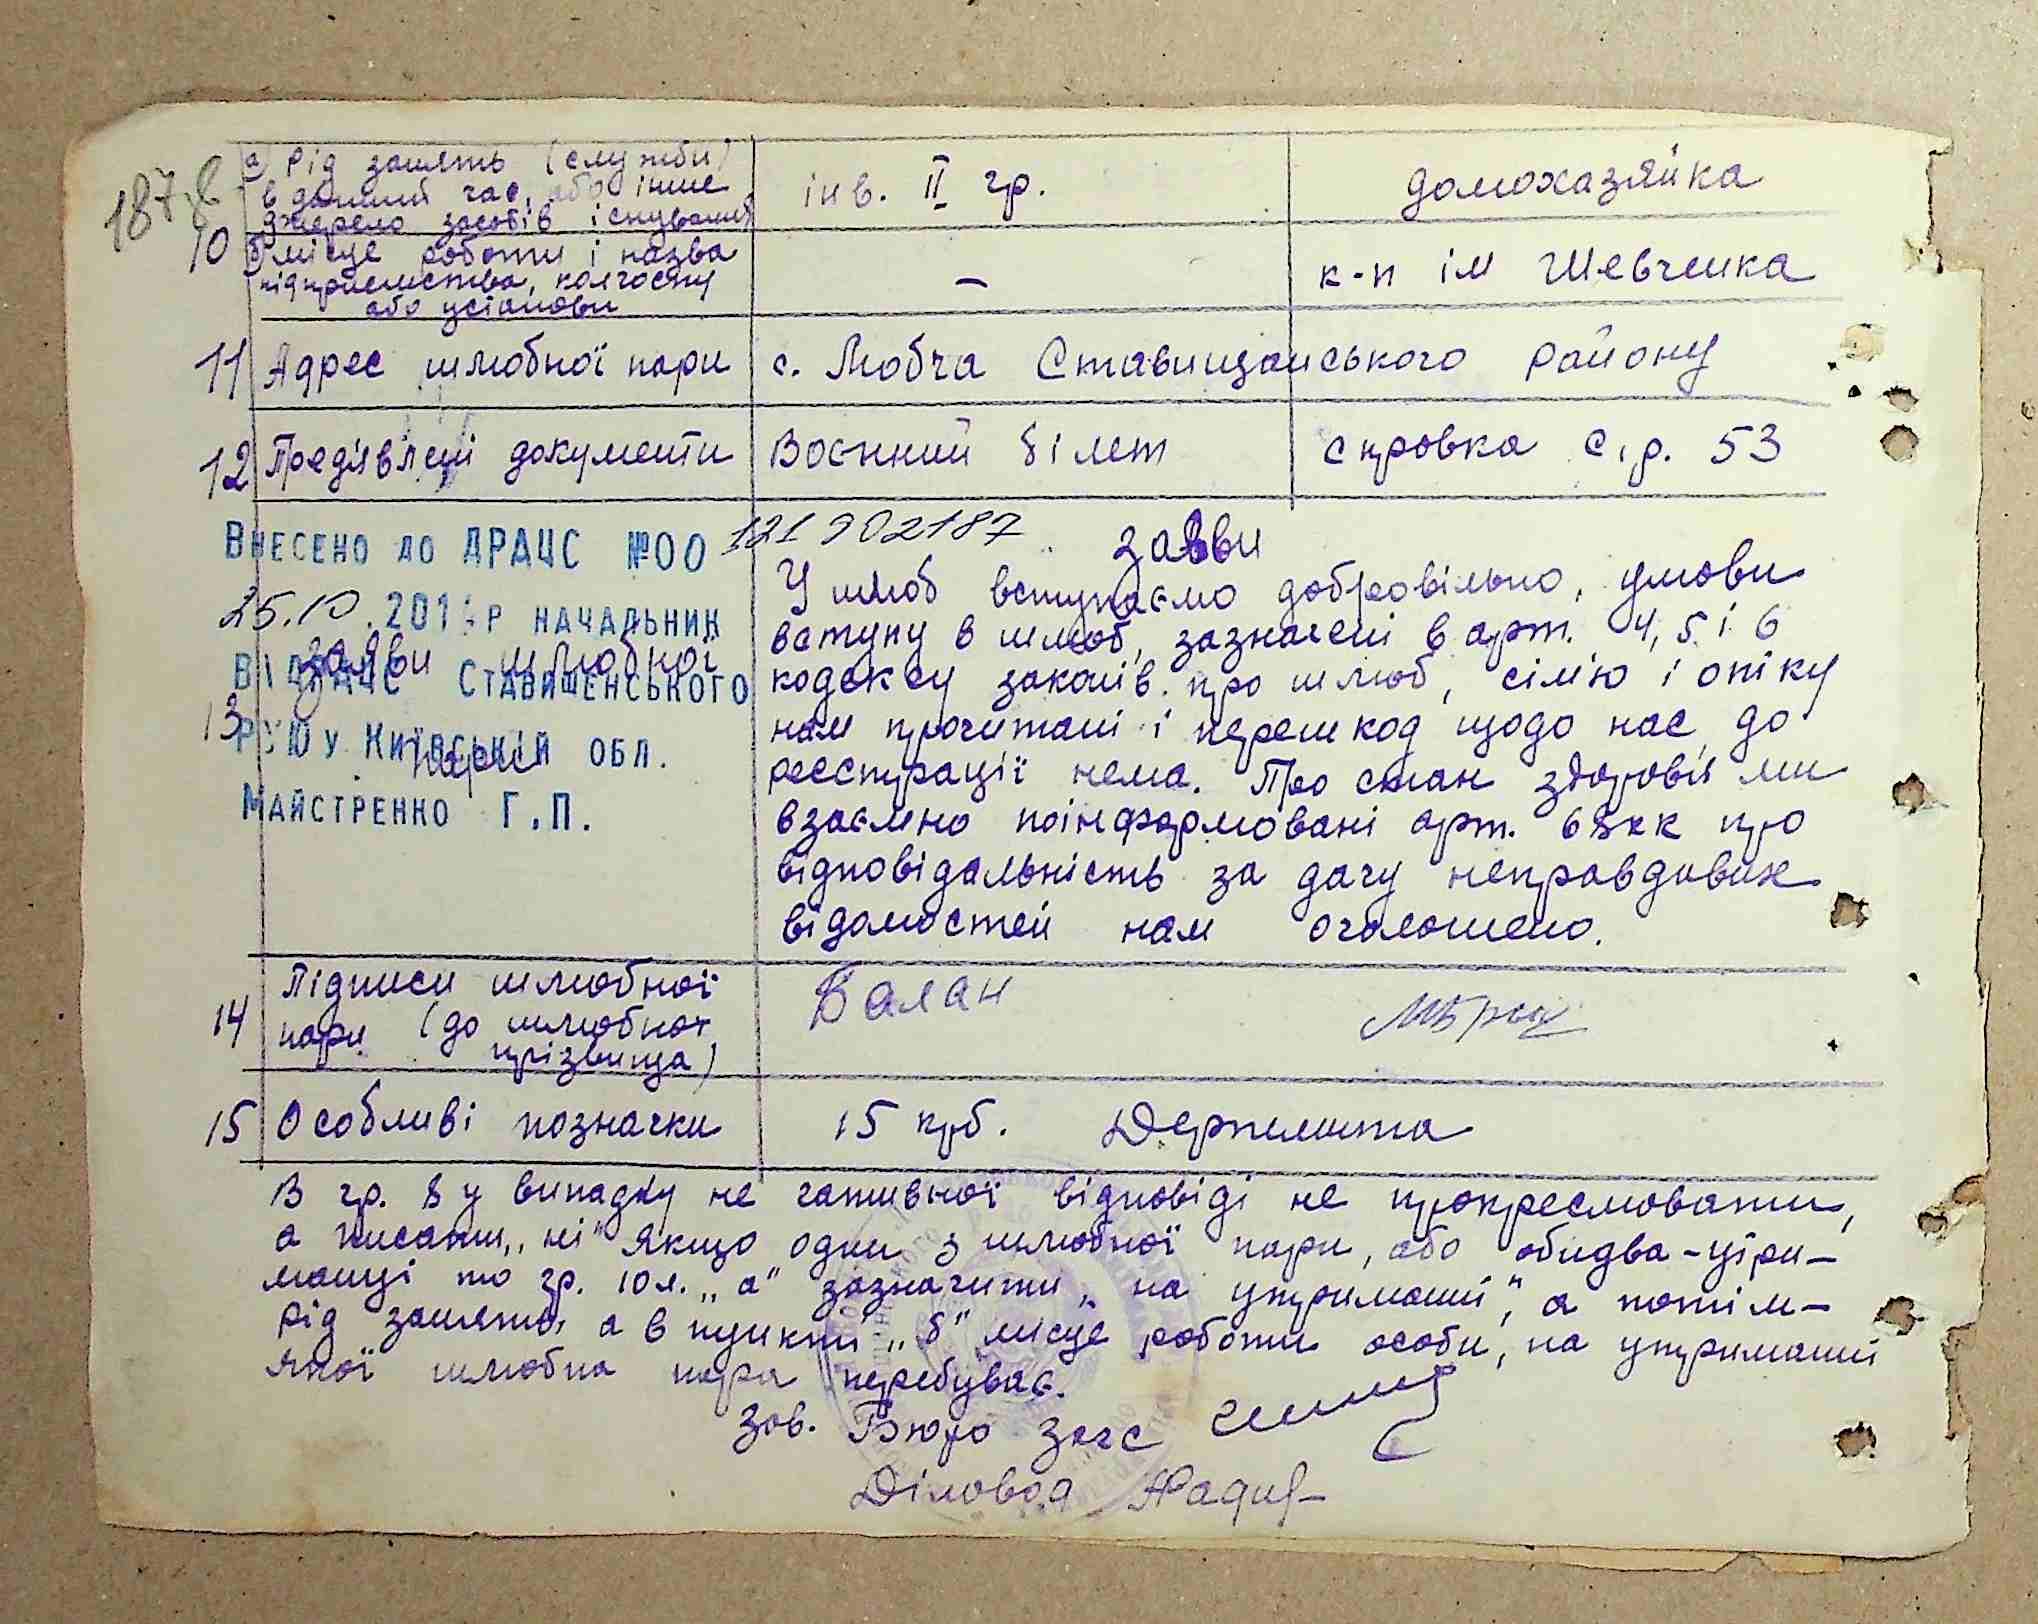 187 зв
а) Рід занять (служби) інв. ІІ гр. домохазяйка
в даний час, або інше
джерело засобів існування
10 б) місце роботи і назва – к-п ім Шевченка
підприємства, колгоспу
або установи
11 Адрес шлюбної пари с. Любча Ставищанського району
12 Предявлені документи Воєнний білет справка с.р. 53
ВНЕСЕНО ДО ДРАЦС №00 121902187 заяви
25.10.201 Р НАЧАЛЬНИК
ВІ ДРАЦС СТАВИЩЕНСЬКОГО
РУЮ У КИЇВСЬКІЙ ОБЛ.
МАЙСТРЕНКО Г.П.
13 заяви шлюбної
пари
У шлюб вступаємо добровільно, умови
вступу в шлюб, зазначені в арт. 4, 5 і 6
кодексу законів про шлюб, сімю і опіку
нам прочитані і перешкод щодо нас до
реєстрації нема. Про стан здоровя ми
взаємно поінформовані арт. 68 кк про
відповідальність за дачу неправдивих
відомостей нам оголошено.
14 Підписи шлюбної Балан
пари (до шлюбного
прізвища)
15 Особливі позначки 15 крб. Держмита
В гр. 8 у випадку не гативної відповіді не прокреслювати,
а писати „ні" якщо один з шлюбної пари, або обидва – утри–
манці то гр. 10 л. „а" зазначити „на утриманні", а потім –
рід занять, а в пункті „б" місце роботи особи, на утриманні
якої шлюбна пара перебуває.
зав. Бюро Загс
Діловод